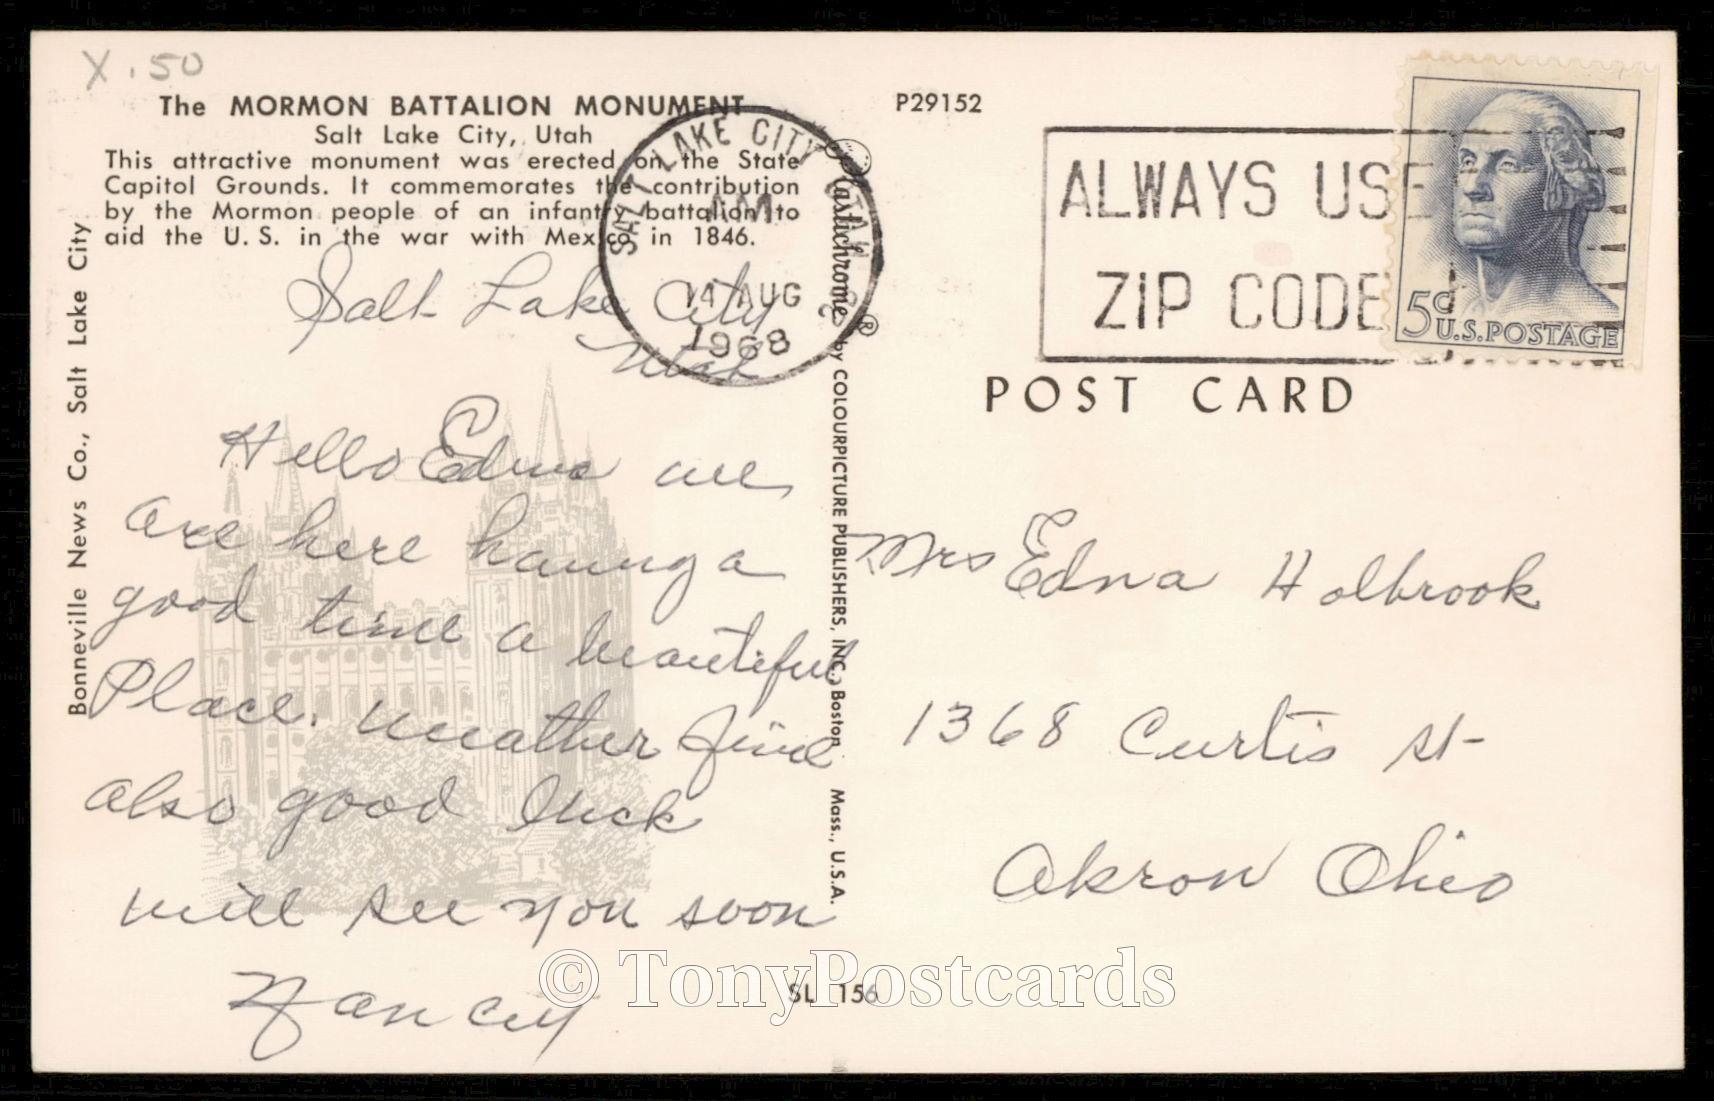 X .50
The MORMON BATTALION MONUMENT
Salt Lake City, Utah
This attractive monument was erected on the State
Capitol Grounds. It commemorates the contribution
by the Mormon people of an infantry battalion to
aid the U. S. in the war with Mexico in 1846.
Bonneville News Co., Salt Lake City
Salt Lake City
Utah
Hello Edna
are here having a
good time a beautiful
Place. weather fine
also good luck
will see you soon
Nancy
SL 156
Plastichrome ® by COLOURPICTURE PUBLISHERS, INC., Boston Mass., U.S.A.
P29152
SALT LAKE CITY UTAH 2
AM
14 AUG
1968
ALWAYS USE
ZIP CODE
5¢
U.S.POSTAGE
POST CARD
Mrs Edna Holbrook
1368 Curtis St
Akron Ohio
© TonyPostcards